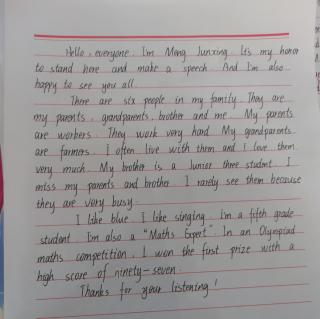 Hello, everyone. I'm Meng Junxing. It's my honor
to stand here and make a speech. And I'm also
happy to see you all.
There are six people in my family. They are
my parents, grandparents, brother and me. My parents
are workers. They work very hard. My grandparents
are farmers. I often live with them and I love them
very much. My brother is a Junior three student. I
miss my parents and brother. I rarely see them because
they are very busy.
I like blue. I like singing. I'm a fifth grade
student. I'm also a "Maths Expert". In an Olympiad
maths competition, I won the first prize with a
high score of ninety-seven.
Thanks for your listening!